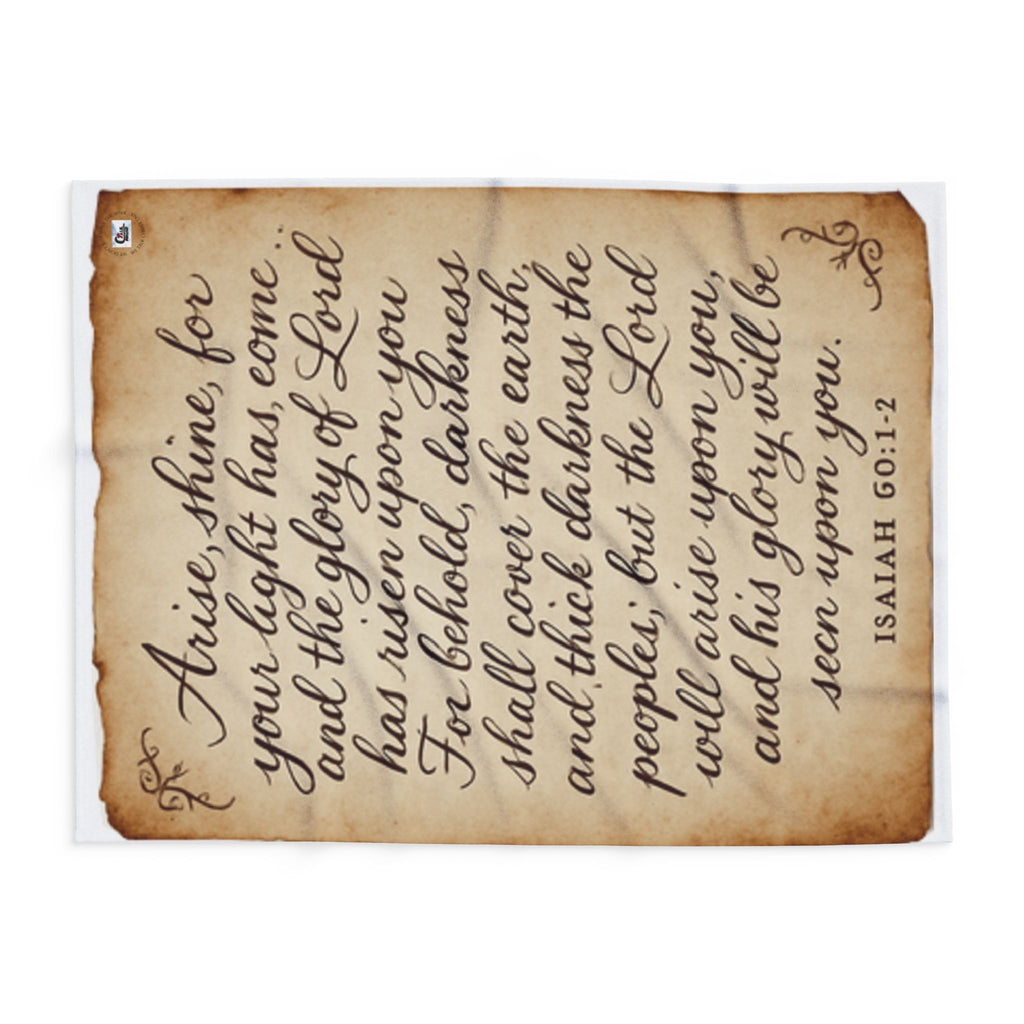 Arise, shine, for
your light has, come...
and the glory of Lord
has risen upon you
For behold, darkness
shall cover the earth,
and thick darkness the
peoples; but the Lord
will arise upon you,
and his glory will be
seen upon you.
ISAIAH 60:1-2